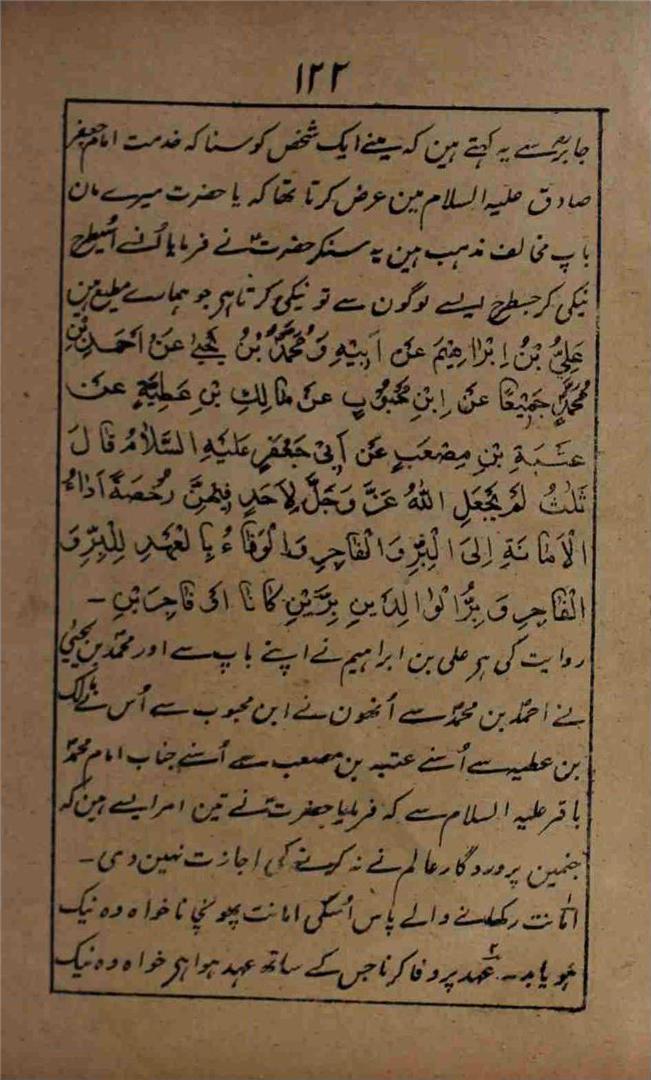 ۱۲۲
جابر سے یہ کہتے ہین کہ مینے ایک شخص کو سنا کہ خدمت امام جعفر
صادق علیہ السلام مین عرض کرتا تھا کہ یا حضرت میرے مان
باپ مخالف مذہب ہین یہ سنکر حضرتؑ نے فرمایا اُنسے اُسیطرح
نیکی کر جسطرح ایسے لوگون سے تو نیکی کرتا ہر جو ہمارے مطیع ہین
عَلِيُّ بْنُ اِبْرَاهِيْمَ عَنْ اَبِيْهِ وَمُحَمَّدُ بْنُ يَحْيٰى عَنْ اَحْمَدَ بْنِ
مُحَمَّدٍ جَمِيْعًا عَنْ اِبْنِ مَحْبُوْبٍ عَنْ مَالِكِ بْنِ عَطِيَّةٍ عَنْ
عَنْبَسَةِ بْنِ مِصْعَبٍ عَنْ اَبِيْ جَعْفَرٍ عَلَيْهِ السَّلَامُ قَالَ
ثَلٰثٌ لَمْ يَجْعَلِ اللّٰهُ عَزَّ وَجَلَّ لِاَحَدٍ فِيْهِنَّ رُخْصَةً اَدَاءُ
الْاَمَانَةِ اِلَى الْبِرِّ وَالْفَاجِرِ وَالْوَفَاءُ بِالْعَهْدِ لِلْبِرِّ وَ
الْفَاجِرِ وَبِرُّ الْوَالِدَيْنِ بِرَّيْنِ كَانَا اَوْ فَاجِرَيْنِ ۔
روایت کی ہر علی بن ابراہیم نے اپنے باپ سے اور محمدؐ بن یحییٰ
نے احمد بن محمدؐ سے اُنھون نے ابن محبوب سے اُس نے مالک
بن عطیہ سے اُسنے عتبہ بن مصعب سے اُسنے جناب امام محمدؐ
باقر علیہ السلام سے کہ فرمایا حضرتؑ نے تین امر ایسے ہین کہ
جنمین پروردگار عالم نے نہ کرنے کی اجازت نہین دی ۔
امانت رکھنے والے پاس اُسکی امانت پھونچانا خواہ وہ نیک
ہو یا بد ۔ ۲ عہد پر وفا کرنا جس کے ساتھ عہد ہوا ہر خواہ وہ نیک